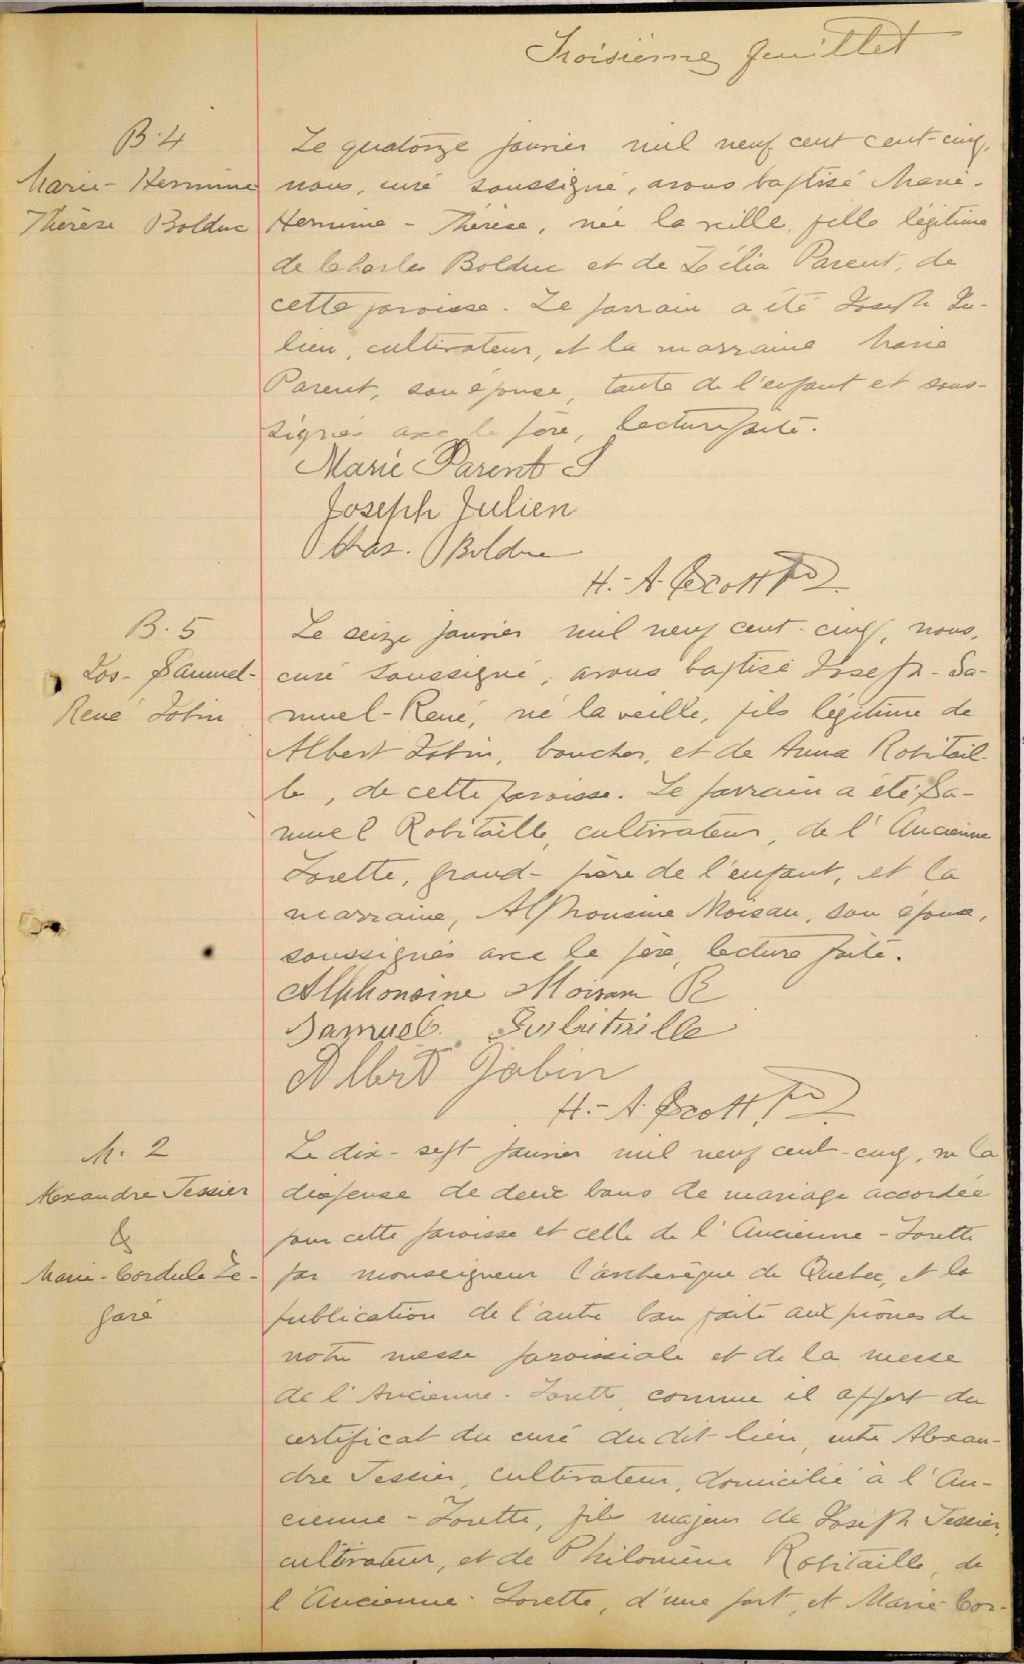 Troisième feuillet
B. 4
Marie-Hermine
Thérèse Bolduc
Le quatorze janvier mil neuf cent cent-cinq,
nous, curé soussigné, avons baptisé Marie-
Hermine-Thérèse, née la veille, fille légitime
de Charles Bolduc et de Zélia Parent, de
cette paroisse. Le parrain a été Joseph Ju-
lien, cultivateur, et la marraine Marie
Parent, son épouse, tante de l'enfant et sous-
signés avec le père, lecture faite.
Marie Parent J
Joseph Julien
Chas. Bolduc
H.-A. Scott Ptre
B. 5
Jos-Samuel-
René Jobin
Le seize janvier mil neuf cent-cinq, nous,
curé soussigné, avons baptisé Joseph-Sa-
muel-René, né la veille, fils légitime de
Albert Jobin, boucher, et de Anna Robitail-
le, de cette paroisse. Le parrain a été Sa-
muel Robitaille, cultivateur, de l'Ancienne
Lorette, grand-père de l'enfant, et la
marraine, Alphonsine Moisan, son épouse,
soussignés avec le père, lecture faite.
Alphonsine Moisan R
Samuel Robitaille
Albert Jobin
H.-A. Scott, Ptre
M. 2
Alexandre Tessier
&
Marie-Cordule Le-
garé
Le dix-sept janvier mil neuf cent-cinq, vu la
dispense de deux bans de mariage accordée
pour cette paroisse et celle de l'Ancienne-Lorette
par monseigneur l'archevêque de Québec, et la
publication de l'autre ban faite aux prônes de
notre messe paroissiale et de la messe
de l'Ancienne-Lorette, comme il appert du
certificat du curé du dit lieu, entre Alexan-
dre Tessier, cultivateur, domicilié à l'An-
cienne-Lorette, fils majeur de Joseph Tessier,
cultivateur, et de Philomène Robitaille, de
l'Ancienne-Lorette, d'une part, et Marie-Cor-